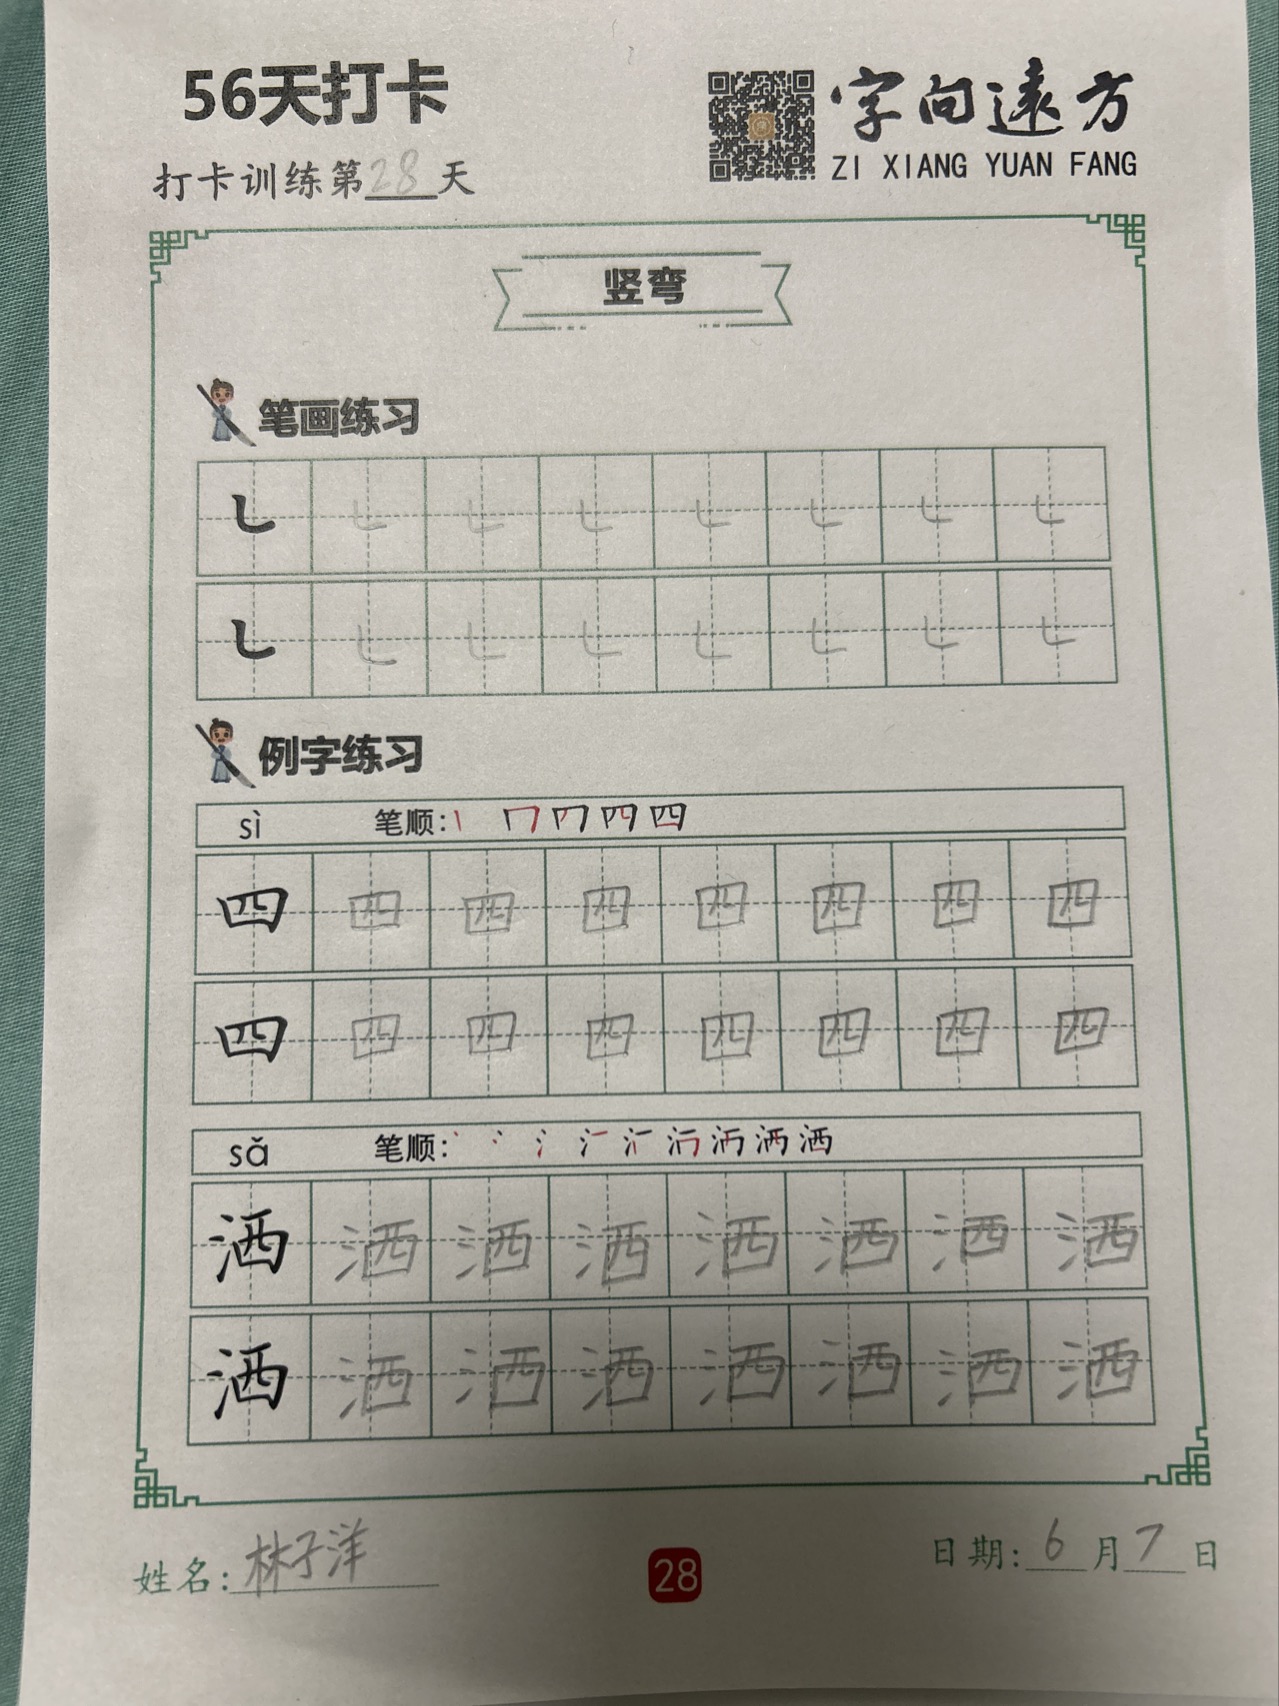 56天打卡
字向远方
ZI XIANG YUAN FANG
打卡训练第28天
竖弯
笔画练习
㇄ ㇄ ㇄ ㇄ ㇄ ㇄ ㇄ ㇄
㇄ ㇄ ㇄ ㇄ ㇄ ㇄ ㇄ ㇄
例字练习
sì 笔顺: 四
四 四 四 四 四 四 四 四
四 四 四 四 四 四 四 四
sǎ 笔顺: 洒
洒 洒 洒 洒 洒 洒 洒 洒
洒 洒 洒 洒 洒 洒 洒 洒
姓名:林子洋
28
日期:6月7日